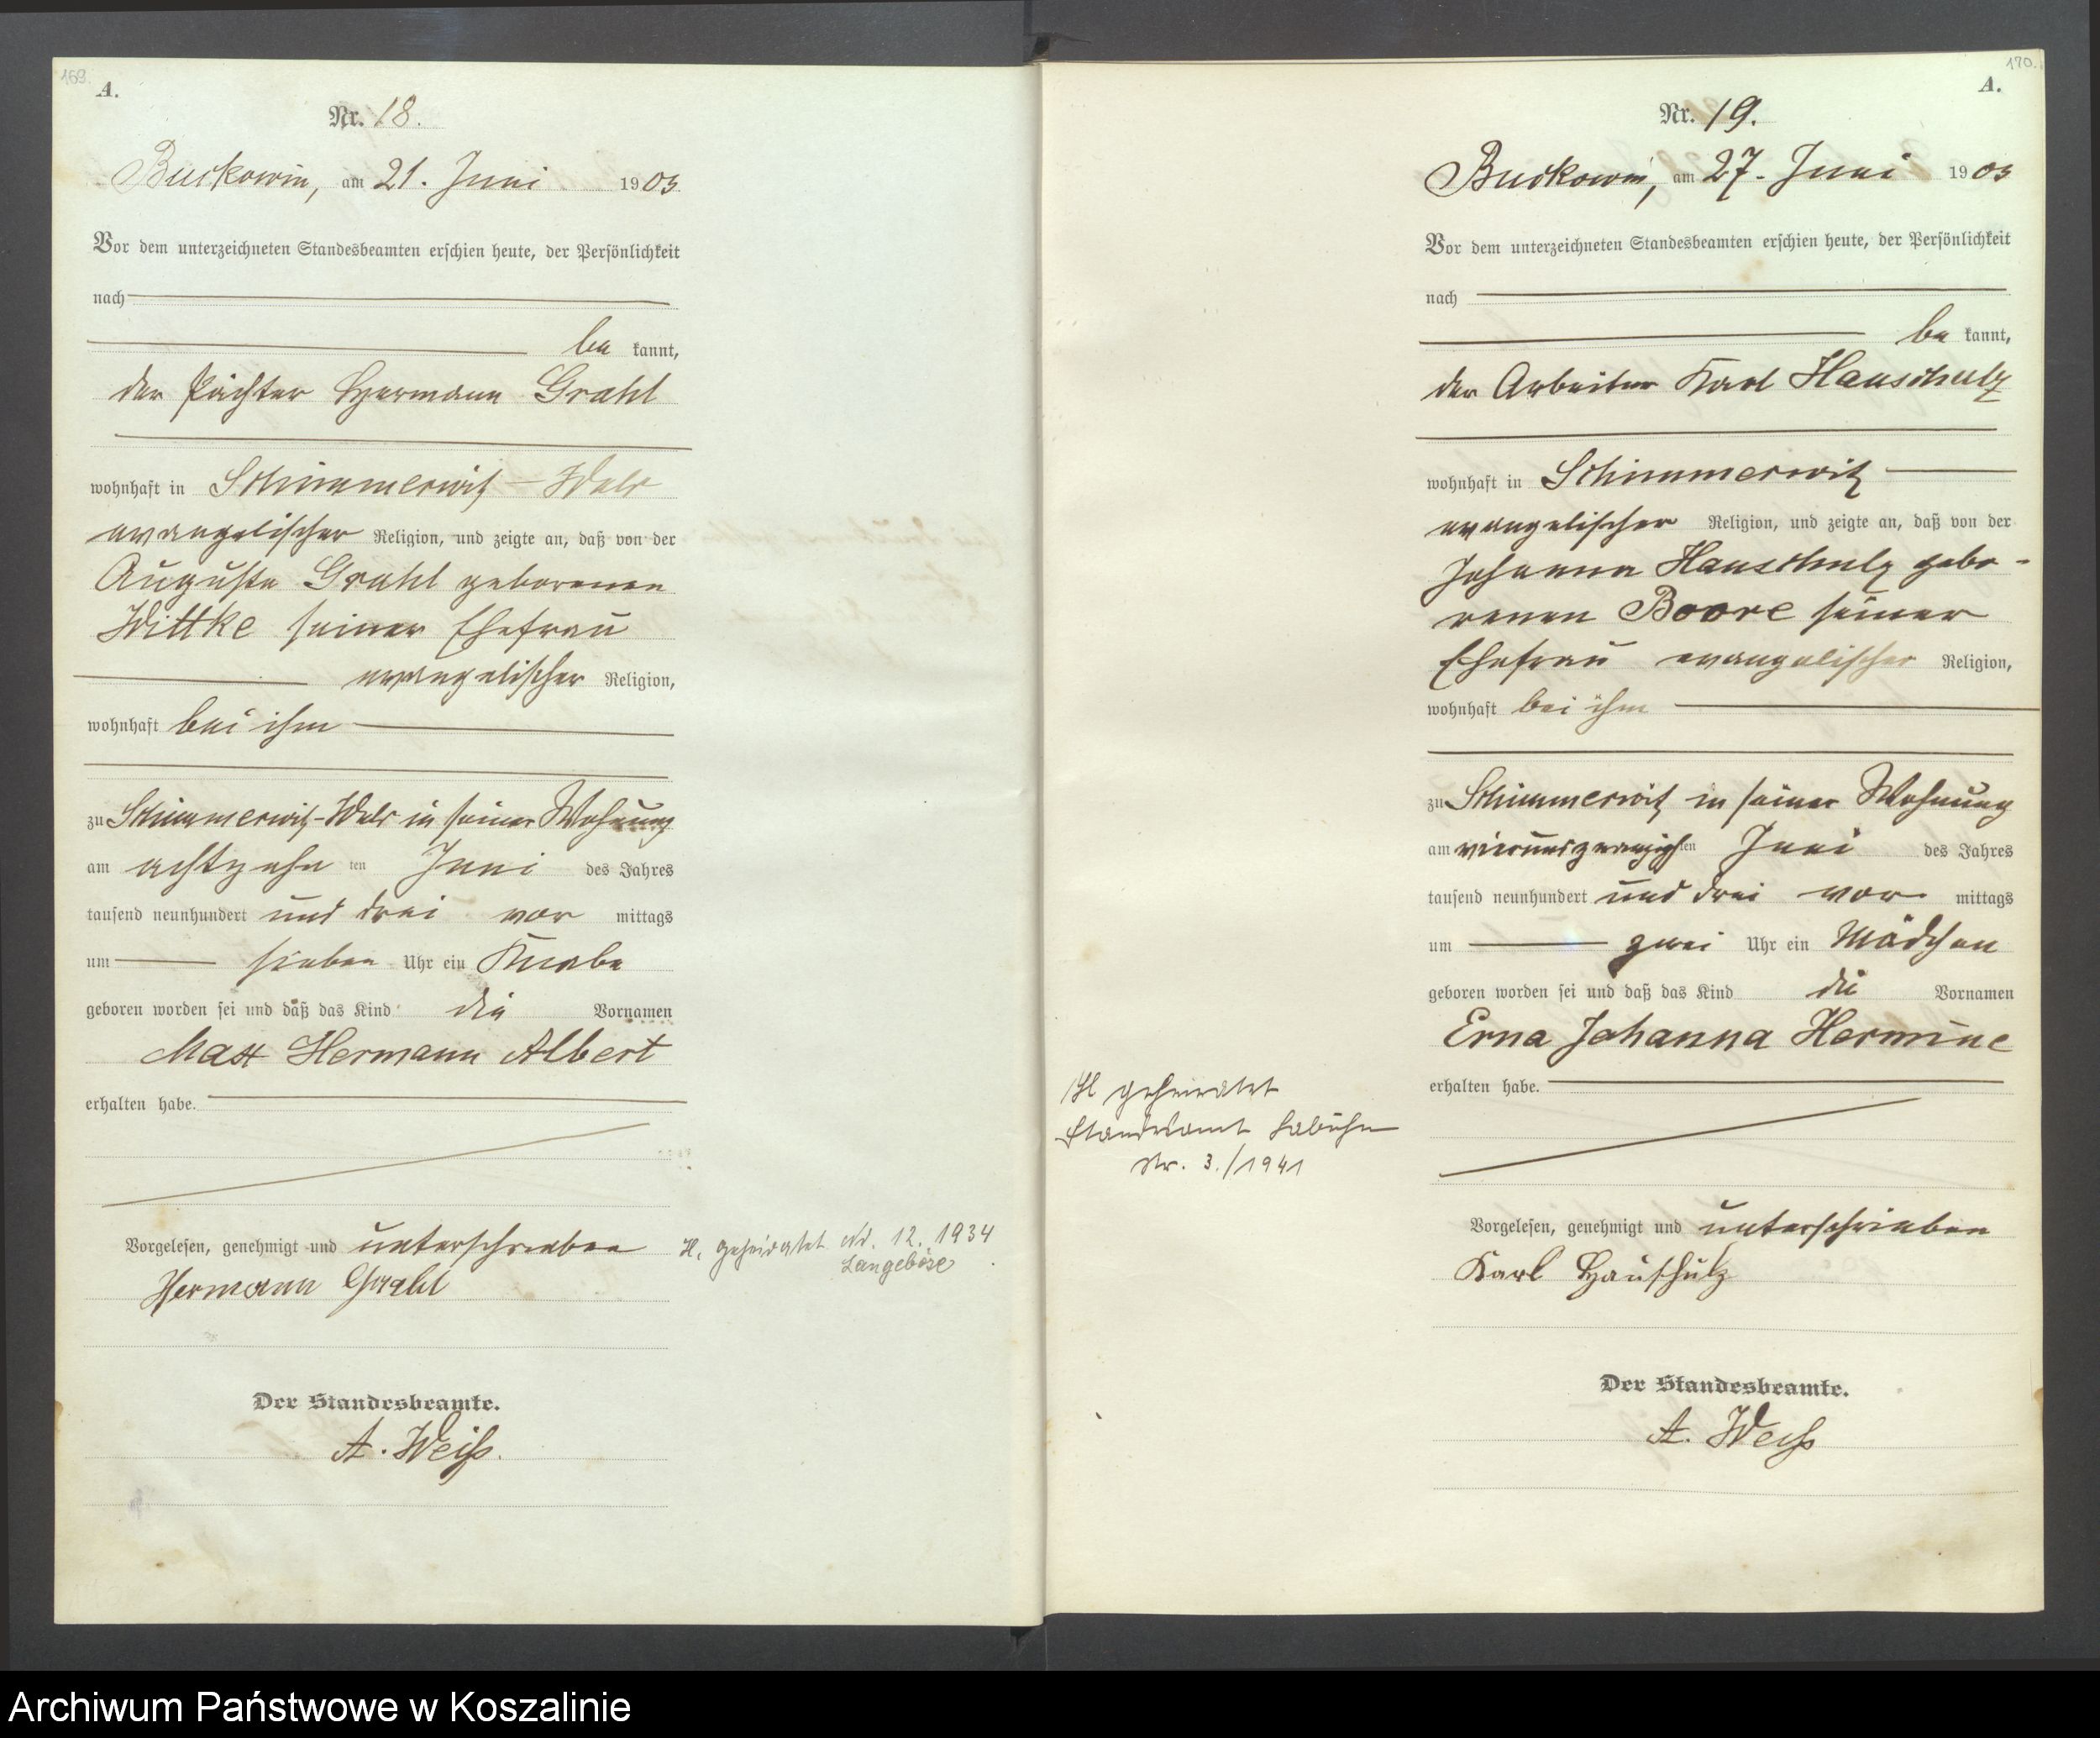 169.
A.
Nr. 18.
Buckowin, am 21. Juni 1903
Vor dem unterzeichneten Standesbeamten erschien heute, der Persönlichkeit
nach
be kannt,
der Pächter Hermann Grahl
wohnhaft in Schimmerwitz - Wals
evangelischer Religion, und zeigte an, daß von der
Auguste Grahl geborenen
Wittke seiner Ehefrau
evangelischer Religion,
wohnhaft bei ihm
zu Schimmerwitz-Wals in seiner Wohnung
am achtzehn ten Juni des Jahres
tausend neunhundert und drei vor mittags
um sieben Uhr ein Knabe
geboren worden sei und daß das Kind die Vornamen
Max Hermann Albert
erhalten habe.
Vorgelesen, genehmigt und unterschrieben
Hermann Grahl
H. geheiratet Nr. 12. 1934
Langeböse
Der Standesbeamte.
A. Weiß.
170.
A.
Nr. 19.
Buckowin, am 27. Juni 1903
Vor dem unterzeichneten Standesbeamten erschien heute, der Persönlichkeit
nach
be kannt,
der Arbeiter Karl Hauschulz
wohnhaft in Schimmerwitz
evangelischer Religion, und zeigte an, daß von der
Johanna Hauschulz gebo-
renen Boore seiner
Ehefrau evangelischer Religion,
wohnhaft bei ihm
zu Schimmerwitz in seiner Wohnung
am vierundzwanzigsten Juni des Jahres
tausend neunhundert und drei vor mittags
um zwei Uhr ein Mädchen
geboren worden sei und daß das Kind die Vornamen
Erna Johanna Hermine
erhalten habe.
geheiratet
Standesamt Labuhn
Nr. 3./1941
Vorgelesen, genehmigt und unterschrieben
Karl Hauschulz
Der Standesbeamte.
A. Weiß
Archiwum Państwowe w Koszalinie